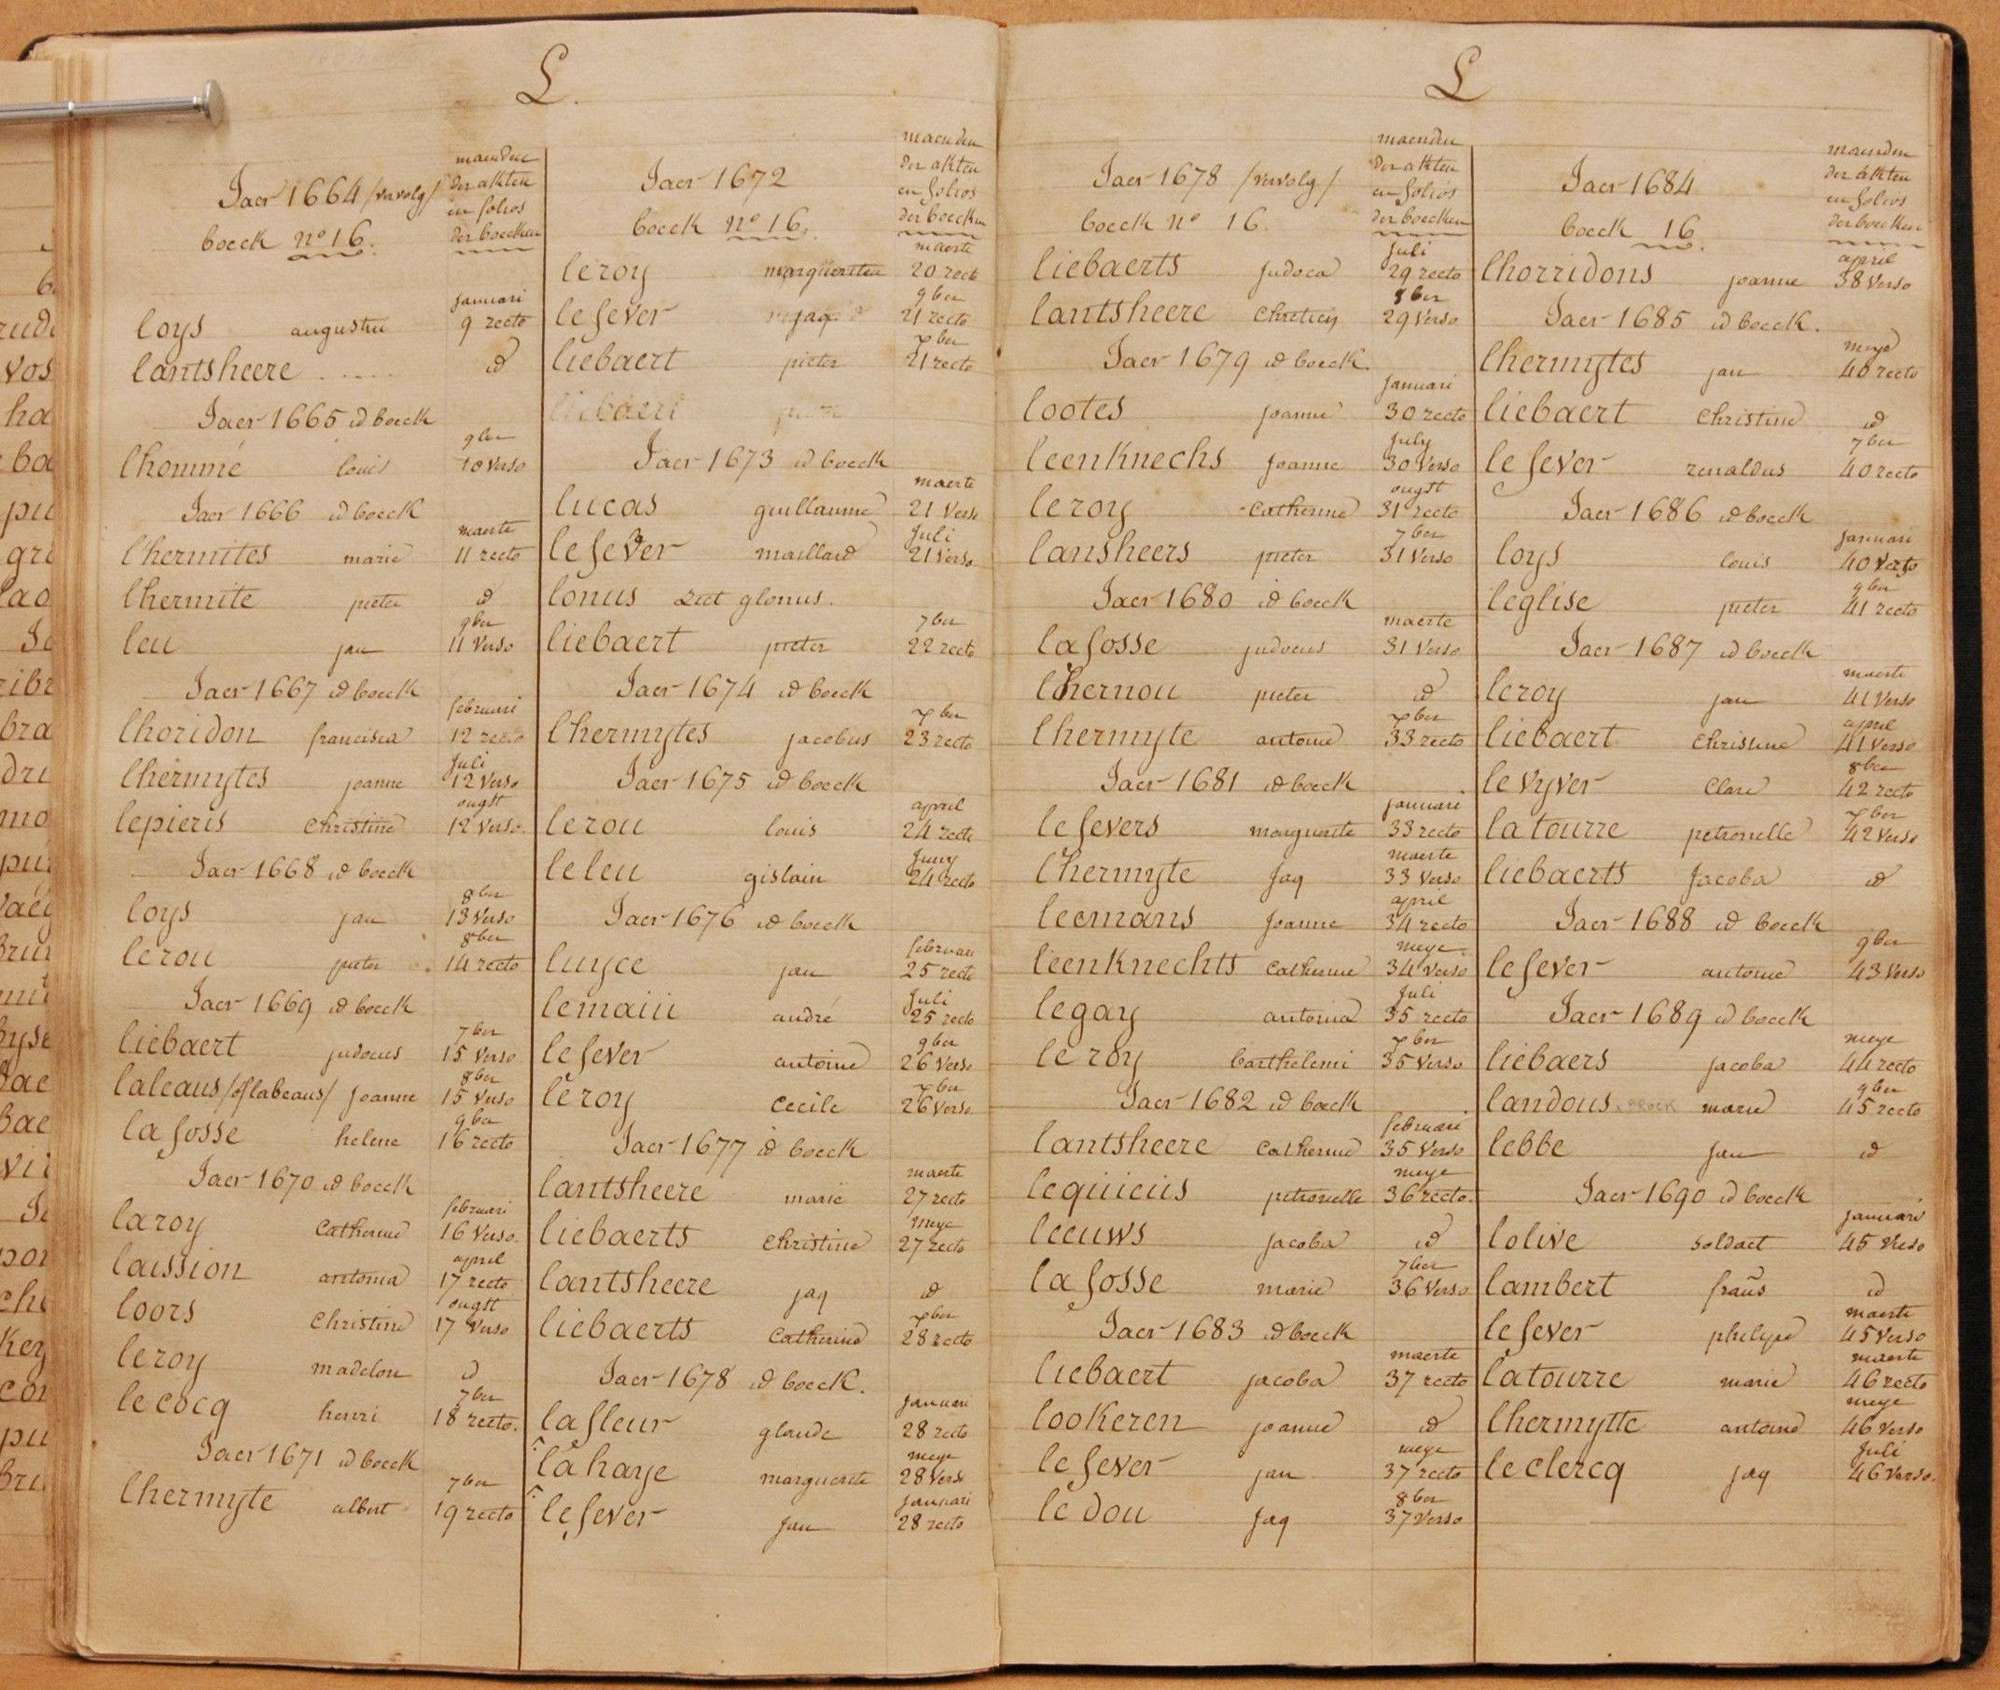 L.
Jaer 1664 /vervolg/
maenden
der akten
en folios
der boecken
boeck nº 16.
januari
loys augustin 9 recto
lantsheere ..... id
Jaer 1665 id boeck
9ber
lhommé louis 10 verso
Jaer 1666 id boeck
maerte
lhermites marie 11 recto
lhermite pieter id
9ber
leu jan 11 verso
Jaer 1667 id boeck
februari
lhoridon francisca 12 recto
Juli
lhermytes joanne 12 verso
ougst
lepieris Christine 12 verso.
Jaer 1668 id boeck
8ber
loys jan 13 verso
8ber
lerou pieter 14 recto
Jaer 1669 id boeck
7ber
liebaert judocus 15 verso
8ber
laleaus /of labeaus/ joanne 15 verso
9ber
lafosse helene 16 recto
Jaer 1670 id boeck
februari
laroy Catherine 16 verso.
april
laission antonia 17 recto
ougst
loors Christine 17 verso
leroy madelon id
7ber
lecocq henri 18 recto.
Jaer 1671 id boeck
7ber
lhermyte albert 19 recto
Jaer 1672
maenden
der akten
en folios
der boecken
boeck nº 16.
maerte
leroy margueritte 20 recto
9ber
lefever jaq 21 recto
7ber
liebaert pieter 21 recto
liebaert
Jaer 1673 id boeck
maerte
lucas guillaume 21 verso
Juli
lefever maillard 21 verso
lonus ziet glonus.
7ber
liebaert pieter 22 recto
Jaer 1674 id boeck
7ber
lhermytes jacobus 23 recto
Jaer 1675 id boeck
april
lerou louis 24 recto
Juny
leleu gislain 24 recto
Jaer 1676 id boeck
februari
luyce jan 25 recto
Juli
lemaiii andré 25 recto
9ber
lefever antoine 26 verso
7ber
leroy Cecile 26 verso
Jaer 1677 id boeck
maerte
lantsheere marie 27 recto
meye
liebaerts Christine 27 recto
lantsheere jaq id
7ber
liebaerts Catherine 28 recto
Jaer 1678 id boeck.
januari
lafleur glaude 28 recto
meye
lahaye marguerite 28 verso
januari
lefever jan 28 recto
L
Jaer 1678 /vervolg/
maenden
der akten
en folios
der boecken
boeck nº 16.
juli
liebaerts judoca 29 recto
8ber
lantsheere Chretien 29 verso
Jaer 1679 id boeck.
januari
lootes joanne 30 recto
july
leenknechs joanne 30 verso
ougst
leroy Catherine 31 recto
7ber
lansheers pieter 31 verso
Jaer 1680 id boeck
maerte
lafosse judocus 31 verso
lhernou pieter id
7ber
lhermyte antoine 33 recto
Jaer 1681 id boeck
januari
lefevers marguerite 33 recto
maerte
lhermyte jaq 33 verso
april
leemans joanne 34 recto
meye
leenknechts Catherine 34 verso
Juli
legay antonia 35 recto
7ber
leroy barthelemi 35 verso
Jaer 1682 id boeck
februari
lantsheere Catherine 35 verso
meye
lequieus petronelle 36 recto.
leeuws jacoba id
7ber
lafosse marie 36 verso
Jaer 1683 id boeck
maerte
liebaert jacoba 37 recto
lookeren joanne id
meye
lefever jan 37 recto
8ber
ledou jaq 37 verso
Jaer 1684
maenden
der akten
en folios
der boecken
boeck 16.
april
lhorridons joanne 38 verso
Jaer 1685 id boeck.
meye
lhermytes jan 40 recto
liebaert Christine id
7ber
lefever renaldus 40 recto
Jaer 1686 id boeck
januari
loys louis 40 verso
9ber
leglise pieter 41 recto
Jaer 1687 id boeck
maerte
leroy jan 41 verso
april
liebaert Christine 41 verso
8ber
levyver Clare 42 recto
7ber
latourre petronelle 42 verso
liebaerts Jacoba id
Jaer 1688 id boeck
9ber
lefever antoine 43 verso
Jaer 1689 id boeck
meye
liebaers jacoba 44 recto
9ber
landous marie 45 recto
lebbe jan id
Jaer 1690 id boeck
januari
lolive soldaet 45 verso
lambert frañs id
maerte
lefever philype 45 verso
maerte
latourre marie 46 recto
meye
lhermytte antoine 46 verso
Juli
leclercq jaq 46 verso.